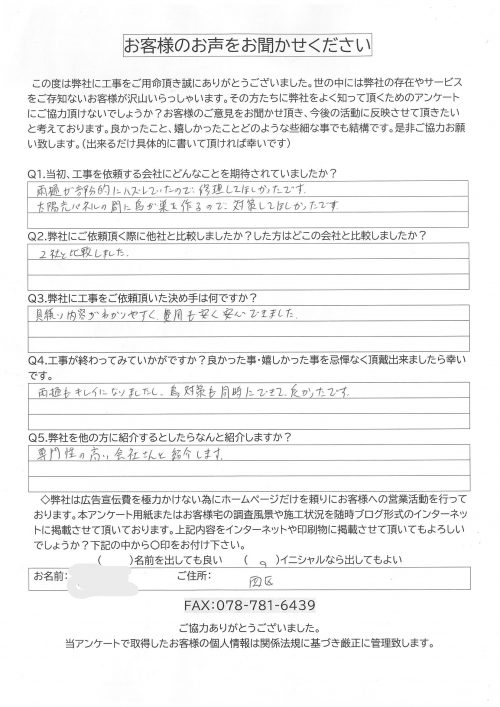 お客様のお声をお聞かせください
この度は弊社に工事をご用命頂き誠にありがとうございました。世の中には弊社の存在やサービス
をご存知ないお客様が沢山いらっしゃいます。その方たちに弊社をよく知って頂くためのアンケート
にご協力頂けないでしょうか？お客様のご意見をお聞かせ頂き、今後の活動に反映させて頂きたい
と考えております。良かったこと、嬉しかったことどのような些細な事でも結構です。是非ご協力お願
い致します。（出来るだけ具体的に書いて頂ければ幸いです）
Q1.当初、工事を依頼する会社にどんなことを期待されていましたか？
雨樋が部分的にハズレていたので、修理してほしかったです。
太陽光パネルの間に鳥が巣を作るので、対策してほしかったです。
Q2.弊社にご依頼頂く際に他社と比較しましたか？した方はどこの会社と比較しましたか？
2社と比較しました。
Q3.弊社に工事をご依頼頂いた決め手は何ですか？
見積り内容がわかりやすく、費用も安く安心できました。
Q4.工事が終わってみていかがですか？良かった事・嬉しかった事を忌憚なく頂戴出来ましたら幸い
です。
雨樋もキレイになりましたし、鳥対策も同時にできて、良かったです。
Q5.弊社を他の方に紹介するとしたらなんと紹介しますか？
専門性の高い会社さんと紹介します。
◇弊社は広告宣伝費を極力かけない為にホームページだけを頼りにお客様への営業活動を行って
おります。本アンケート用紙またはお客様宅の調査風景や施工状況を随時ブログ形式のインターネッ
トに掲載させて頂いております。上記内容をインターネットや印刷物に掲載させて頂いてもよろしい
でしょうか？下記の中から〇印をお付け下さい。
（　　）名前を出しても良い　（　○　）イニシャルなら出してもよい
お名前：　ご住所：　西区
FAX:078-781-6439
ご協力ありがとうございました。
当アンケートで取得したお客様の個人情報は関係法規に基づき厳正に管理致します。